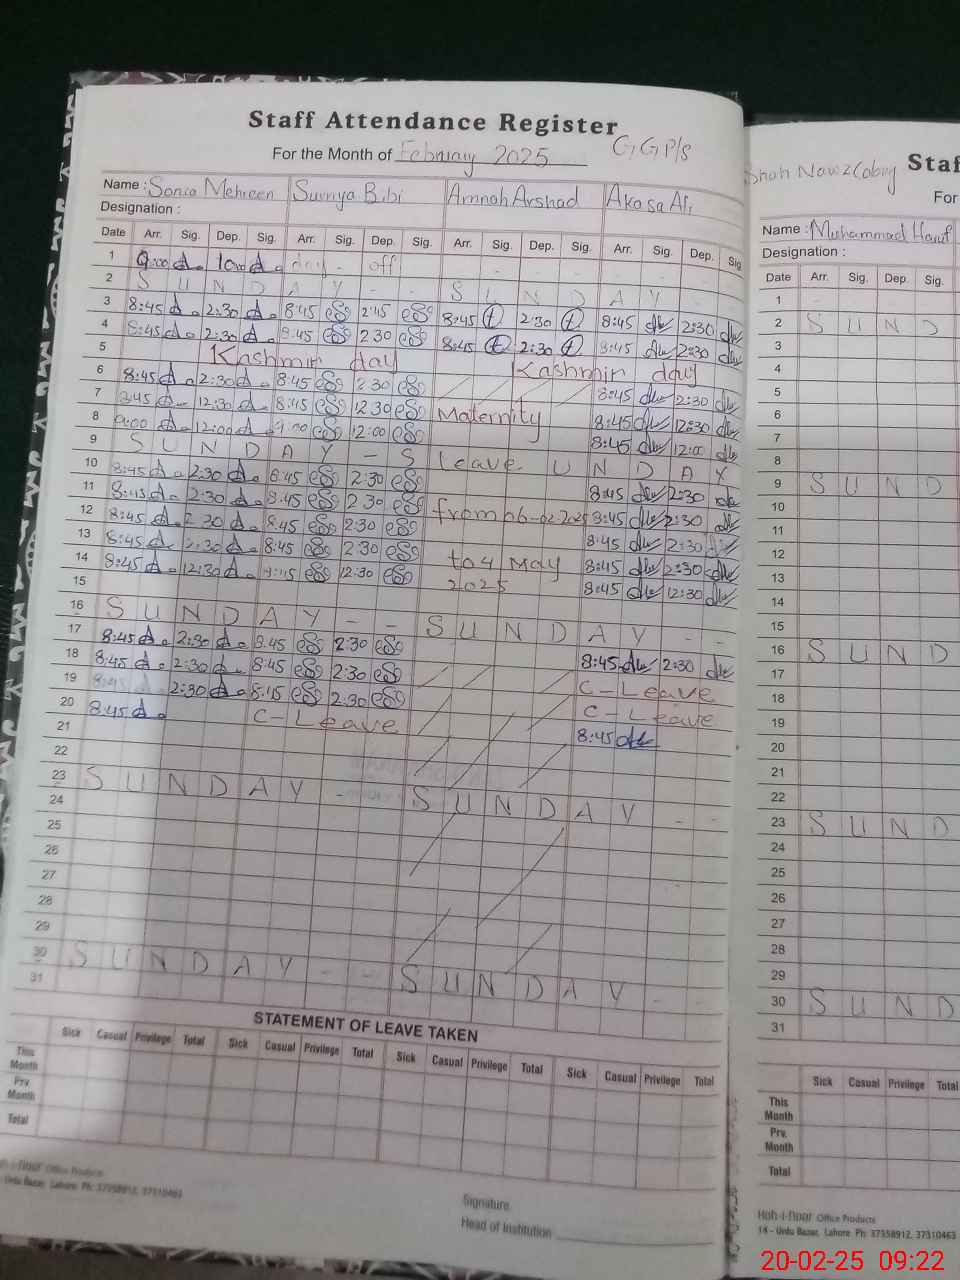 Staff Attendance Register
For the Month of February 2025 G,G,P/S
Name : Sonia Mehreen Surriya Bibi Amnah Arshad Akasa Ali
Designation :
Date Arr. Sig. Dep. Sig. Arr. Sig. Dep. Sig. Arr. Sig. Dep. Sig. Arr. Sig. Dep. Sig.
1 9:00 day - off
2 S U N D A Y - - S U N D A Y - -
3 8:45 2:30 8:45 2:45 8:45 2:30 8:45 2:30
4 8:45 2:30 8:45 2:30 8:45 2:30 8:45 2:30
5 Kashmir day Kashmir day
6 8:45 2:30 8:45 2:30 8:45 2:30
7 8:45 12:30 8:45 12:30 Maternity 8:45 12:30
8 9:00 12:00 9:00 12:00 8:45 12:00
9 S U N D A Y - S Leave U N D A Y
10 8:45 2:30 8:45 2:30 8:45 2:30
11 8:45 2:30 8:45 2:30 from 06-02-2025 8:45 2:30
12 8:45 2:30 8:45 2:30 8:45 2:30
13 8:45 2:30 8:45 2:30 to 4 May 8:45 2:30
14 8:45 12:30 12:30 2025 8:45 12:30
15
16 S U N D A Y - - S U N D A Y - -
17 8:45 2:30 8:45 2:30 8:45 2:30
18 8:45 2:30 8:45 2:30 C-Leave
19 8:45 2:30 8:45 2:30 C-Leave
20 8:45 C-Leave 8:45
21
22
23 S U N D A Y - - S U N D A Y - -
24
25
26
27
28
29
30 S U N D A Y - - S U N D A Y - -
31
STATEMENT OF LEAVE TAKEN
Sick Casual Privilege Total Sick Casual Privilege Total Sick Casual Privilege Total Sick Casual Privilege Total
This Month
Prv. Month
Total
Office Products
Urdu Bazar, Lahore Ph: 37358912, 37310463
Signature
Head of Institution
Shah Nawz Staf
For
Name : Muhammad Hanif
Designation :
Date Arr. Sig. Dep. Sig.
1
2 S U N D
3
4
5
6
7
8
9 S U N D
10
11
12
13
14
15
16 S U N D
17
18
19
20
21
22
23 S U N D
24
25
26
27
28
29
30 S U N D
31
Sick Casual Privilege Total
This Month
Prv. Month
Total
Koh-i-noor Office Products
14 - Urdu Bazar, Lahore Ph: 37358912, 37310463
20-02-25 09:22